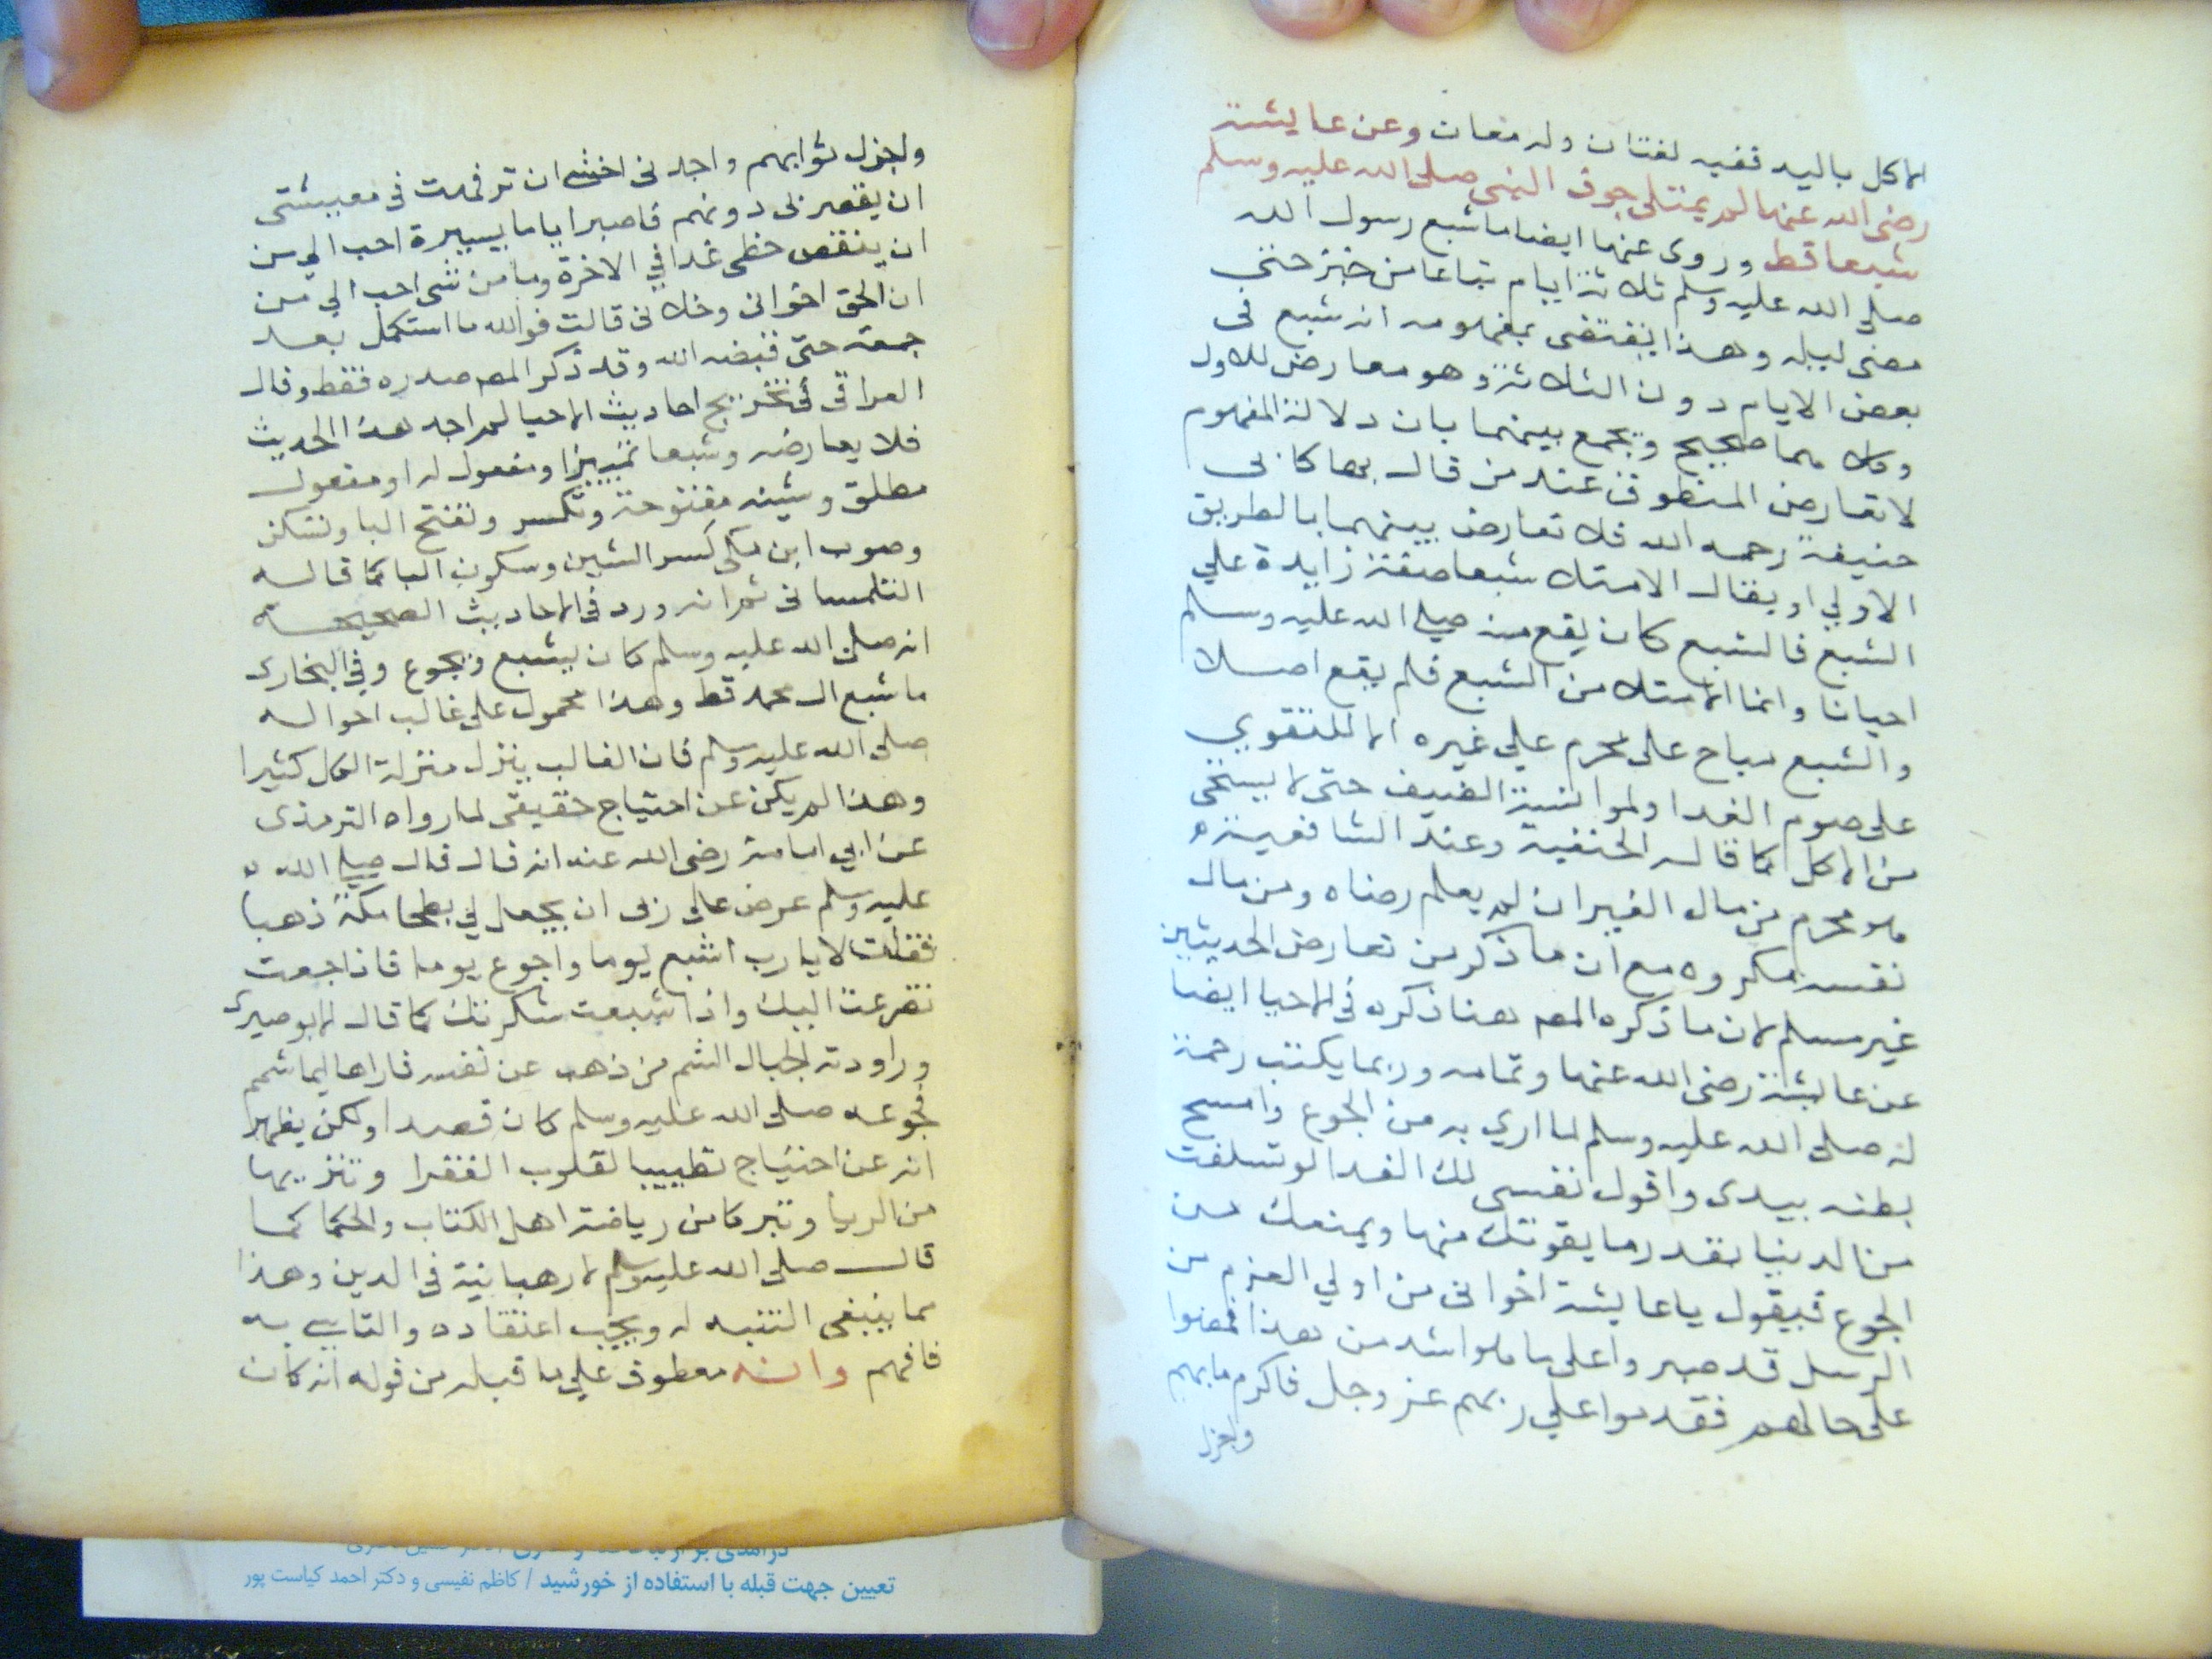 الاكل باليد ففيه لغتان وله معان وعن عايشة
رضي الله عنها لم يمتلى جوف النبي صلى الله عليه وسلم
شبعا قط وروى عنها ايضا ما شبع رسول الله
صلى الله عليه وسلم ثلاثة ايام تباعا من خبز حتى
مضى لسبيله وهذا يقتضى بمفهومه انه شبع فى
بعض الايام دون الثلاثة وهو معارض للاول
وكلاهما صحيح ويجمع بينهما بان دلالة المفهوم
لا تعارض المنطوق عند من قال بها كابى
حنيفة رحمه الله فلا تعارض بينهما بالطريق
الاولي او يقال الامتلا شبعا صفة زايدة علي
الشبع فالشبع كان يقع منه صلي الله عليه وسلم
احيانا وانما الامتلا من الشبع فلم يقع اصلا
والشبع مباح على محرم علي غيره الا للتقوي
على صوم الغد اولموانسة الضيف حتى لا يستحى
من الاكل كما قاله الحنفية وعند الشافعية
هو محرم من مال الغير ان لم يعلم رضاه ومن مال
نفسه مكروه مع ان ما ذكر من تعارض الحديثين
غير مسلم لان ما ذكره المص هنا ذكره فى الاحيا ايضا
عن عايشة رضى الله عنها وتمامه وربما يكتب رحمة
له صلى الله عليه وسلم لما اري به من الجوع وامسح
بطنه بيدى واقول نفسى لك الفدا لو تبلغت
من الدنيا بقدر ما يقوتك منها ويمنعك من
الجوع فيقول يا عايشة اخوانى من اولي العزم من
الرسل قد صبروا على ما هو اشد من هذا فمضوا
على حالهم فقدموا علي ربهم عز وجل فاكرم مابهم
واجزل
واجزل ثوابهم واجدنى اخشى ان ترفهت فى معيشتى
ان يقصر بى دونهم فاصبر اياما يسيرة احب الي من
ان ينقص حظى غدا في الاخرة وما من شى احب الي من
ان الحق اخوانى وخلانى قالت فوالله ما استكمل بعد
جمعة حتى قبضه الله وقد ذكر المص صدره فقط وقال
العراقى فى تخريج احاديث الاحيا لم اجد هذا الحديث
فلا يعارضه وشبعا تمييزا ومفعول له او مفعول
مطلق وشينه مفتوحة وتكسر وتفتح البا وتسكن
وصوب ابن مكى كسر الشين وسكون البا كما قاله
التلمسانى ثم انه ورد فى الاحاديث الصحيحه
انه صلى الله عليه وسلم كان يشبع ويجوع وفي البخارى
ما شبع ال محمد قط وهذا محمول على غالب احواله
صلى الله عليه وسلم فان الغالب ينزل منزلة الكل كثيرا
وهذا لم يكن عن احتياج حقيقى لما رواه الترمذى
عن ابي امامة رضى الله عنه انه قال قال صلي الله
عليه وسلم عرض على ربى ان يجعل لي بطحا مكة ذهبا
فقلت لا يا رب اشبع يوما واجوع يوما فاذا جعت
تضرعت اليك واذا شبعت شكرتك كما قال الابوصيرى
وراودته الجبال الشم من ذهب عن نفسه فاراها ايما شمم
فجوعه صلى الله عليه وسلم كان قصدا ولكن يظهر
انه عن احتياج تطييبا لقلوب الفقرا وتنزيها
من الريا وتبركا من رياضة اهل الكتاب والحكما كما
قال صلى الله عليه وسلم لا رهبانية فى الدين وهذا
مما ينبغى التنبه له ويجب اعتقاده والتاسي به
فافهم وانه معطوف علي ما قبله من قوله انه كان
تعیین جهت قبله با استفاده از خورشید / کاظم نفیسی و دکتر احمد کیاست پور